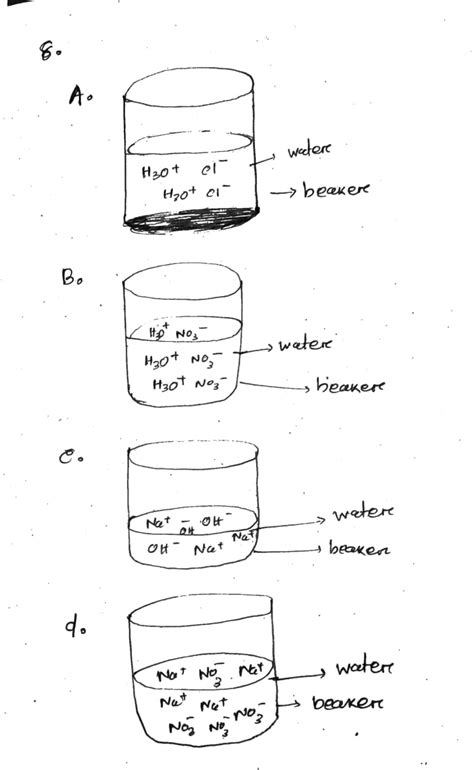 8.
A.
H3O+ Cl-
H2O+ Cl-
water
beaker
B.
H3O+ NO3-
H3O+ NO3-
H3O+ NO3-
water
beaker
c.
Na+ OH- OH-
OH- Na+ Na+
water
beaker
d.
Na+ NO3- Na+
Na+ Na+
NO3- NO3- NO3-
water
beaker